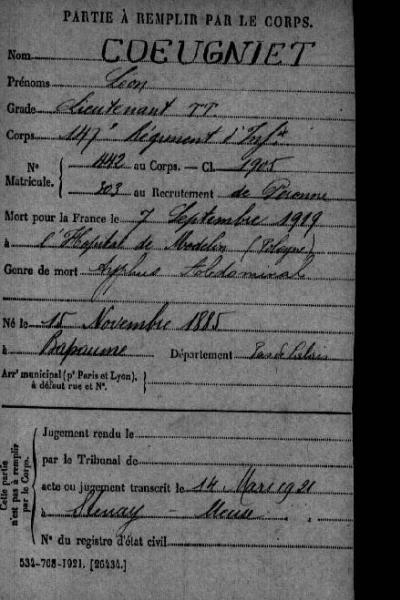 PARTIE À REMPLIR PAR LE CORPS.
Nom COEUGNIET
Prénoms Léon
Grade Lieutenant TT.
Corps 147e Régiment d'Infie
N° Matricule. { 442 au Corps. — Cl. 1905
303 au Recrutement de Peronne
Mort pour la France le 7 Septembre 1919
à l'Hopital de Modelin (Pologne)
Genre de mort Typhus abdominale
Né le 15 Novembre 1885
à Bapaume Département Pas de Calais
Arrt municipal (pr Paris et Lyon), à défaut rue et N°.
Cette partie n'est pas à remplir par le Corps.
Jugement rendu le
par le Tribunal de
acte ou jugement transcrit le 14 Mars 1921
à Stenay – Meuse
N° du registre d'état civil
534-708-1921. [26434.]